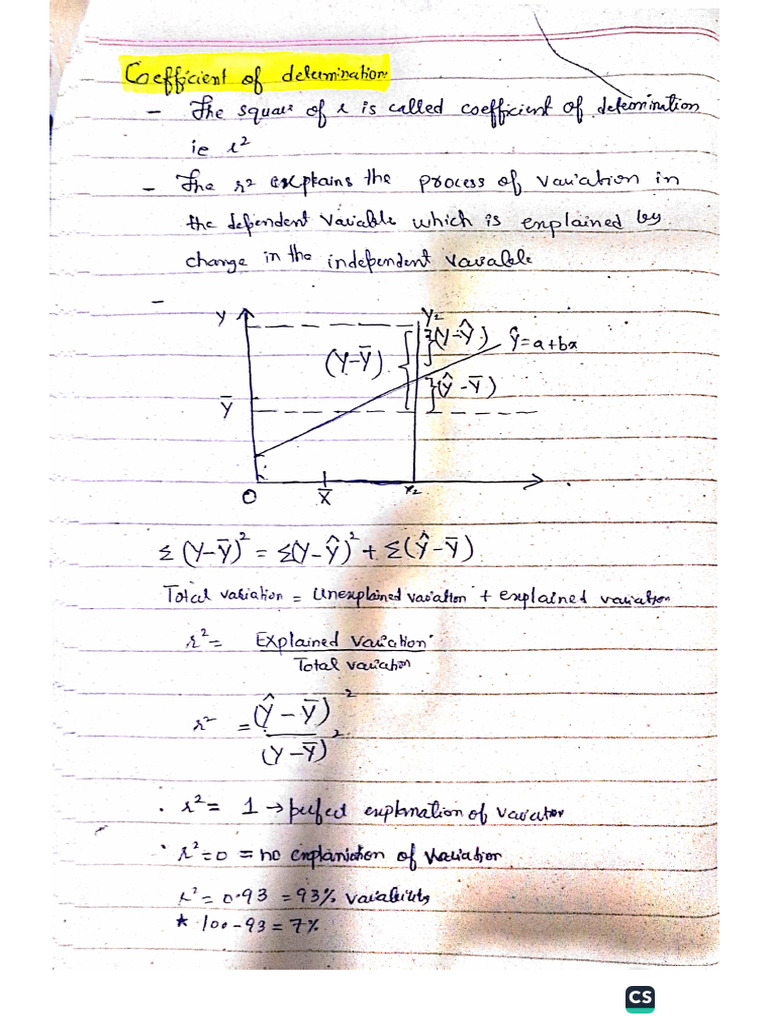 Coefficient of determination
- The square of r is called coefficient of determination
ie r²
- The r² explains the process of variation in
the dependent variable which is explained by
change in the independent variable
-
Y
Y₂
(Y-Ȳ)
(Y-Ŷ)
Ŷ=a+bx
(Ŷ-Ȳ)
Ȳ
O
X̄
x₂
Σ(Y-Ȳ)² = Σ(Y-Ŷ)² + Σ(Ŷ-Ȳ)
Total variation = Unexplained variation + explained variation
r² = Explained Variation
Total variation
r² = (Ŷ-Ȳ)²
(Y-Ȳ)²
. r² = 1 → perfect explanation of variation
. r²=0 = no explanation of variation
r² = 0.93 = 93% variability
* 100-93 = 7%
CS